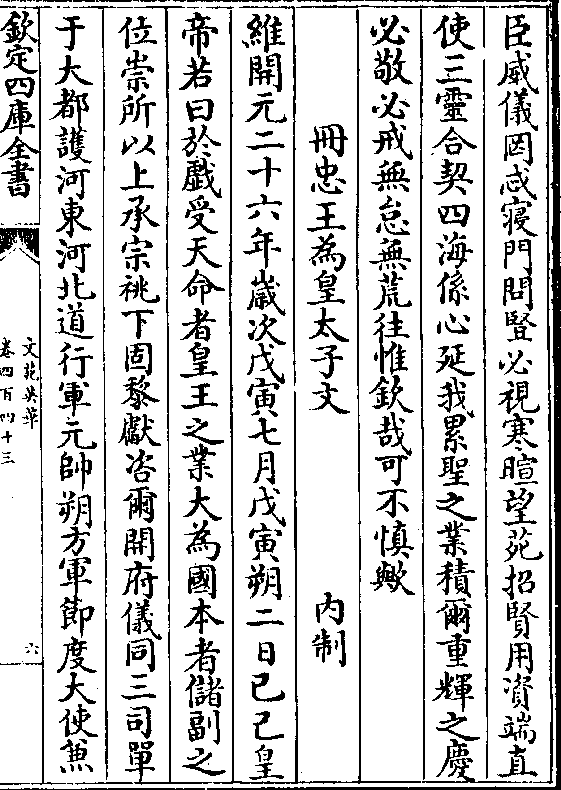 臣威儀罔忒寢門問豎必視寒暄望苑招賢用資端直
使三靈合契四海係心延我累聖之業積爾重輝之慶
必敬必戒無怠無荒往惟欽哉可不慎歟
冊忠王為皇太子文 内制
維開元二十六年歲次戊寅七月戊寅朔二日己己皇
帝若曰於戲受天命者皇王之業大為國本者儲副之
位崇所以上承宗祧下固黎獻咨爾開府儀同三司單
于大都護河東河北道行軍元帥朔方軍節度大使兼
欽定四庫全書
文苑英華
卷四百四十三
六